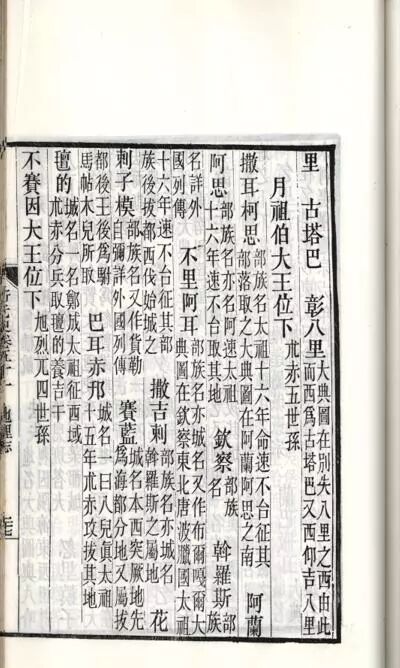 里 古塔巴 彰八里 大典圖在別失八里之西由此
而西爲古塔巴又西仰吉八里
月祖伯大王位下 朮赤五世孫
撒耳柯思 部族名太祖十六年命速不台征其
部落取之大典圖在阿蘭阿思之南 阿蘭
阿思 部族名亦名阿速太祖
十六年速不台取其地 欽察 部族
名 斡羅斯 部
族
名詳外
國列傳 不里阿耳 部族名亦城名又作布爾嘎爾大
典圖在欽察東北唐波臘國太祖
十六年速不台征其部
族後拔都西伐始城之 撒吉剌 部族名亦城名
斡羅斯之屬地 花
剌子模 部族名又作貨勒
自彌詳外國列傳 賽藍 城名本西突厥地先
爲海部分地又屬拔
都後王後爲駙
馬帖木兒所取 巴耳赤邗 城名一曰八兒眞太祖
十五年朮赤攻拔其地
氊的 城名一名鄭成太祖征西域
朮赤分兵取氊的養吉干
不賽因大王位下 旭烈兀四世孫
新元史卷五十一 地理志